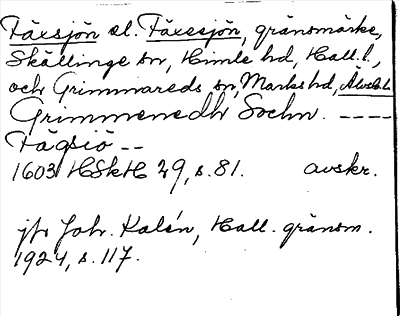 Fäxsjön el. Fäxesjön, gränsmärke,
Skällinge sn, Himle hd, Hall. l.,
och Grimmareds sn, Marks hd, Älvsb. l.
Grimmenedh Sochn. ----
Fägsiö --
1603 HSkH 29, s. 81. avskr.
jfr Joh. Kalén, Hall. gränsm.
1924, s. 117.